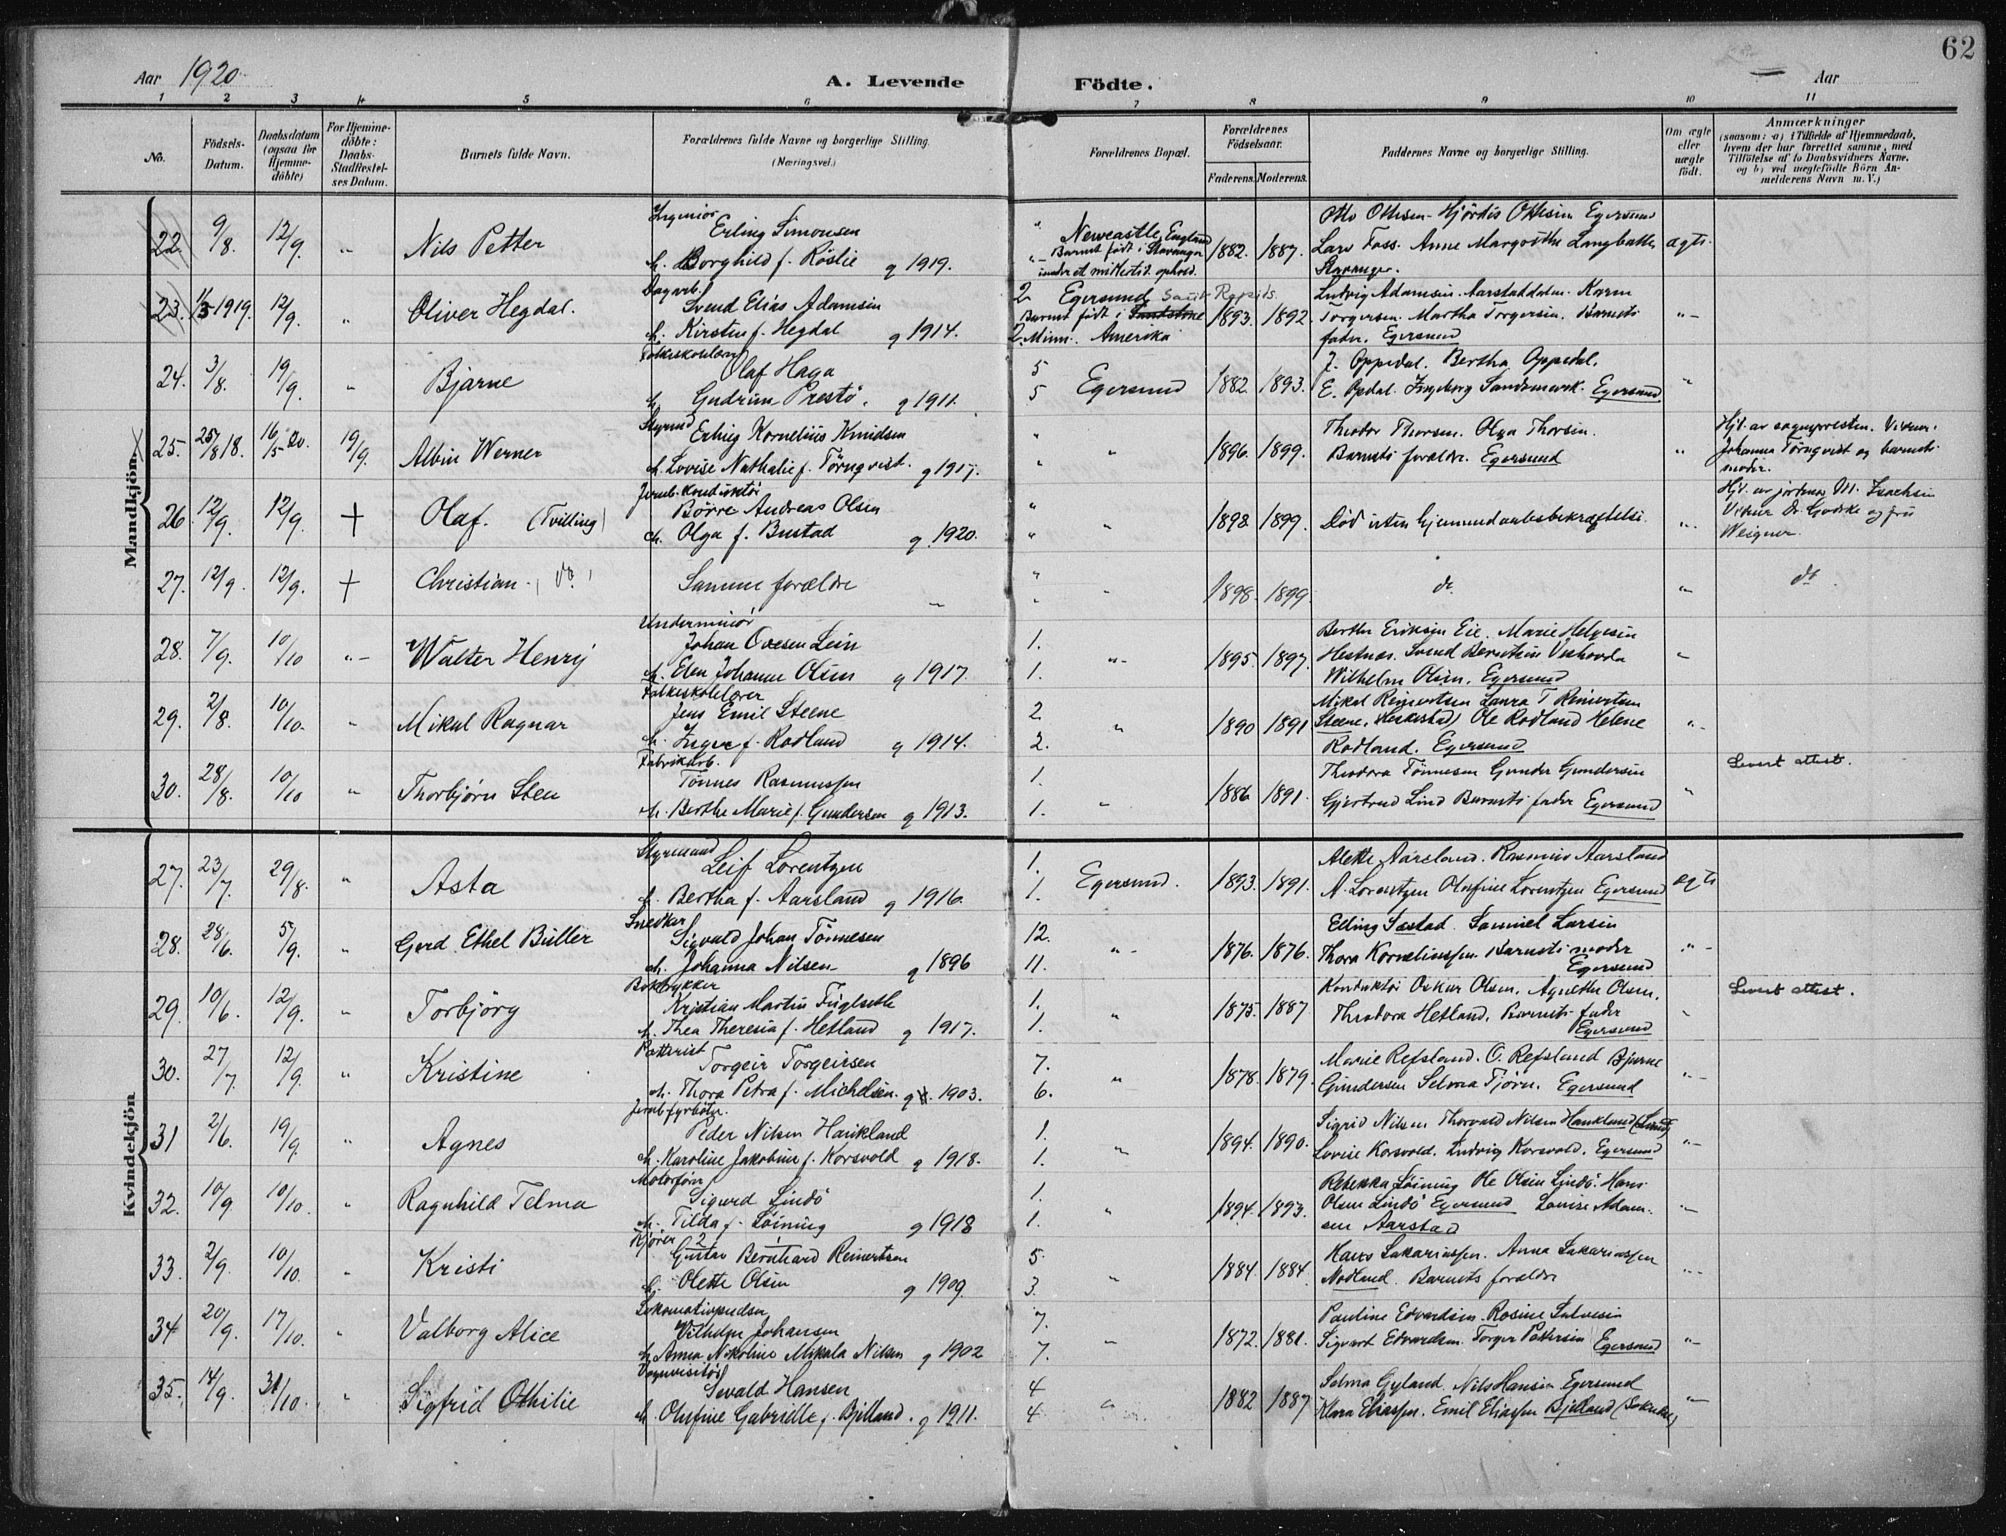 62
Aar 1920
A. Levende Födte.
Aar
1 2 3 4 5 6 7 8 9 10 11
No.
Födsels-Datum.
Daabsdatum (ogsaa for Hjemmedöbte)
For Hjemmedöbte: Daabs-Stadfæstelses Datum.
Barnets fulde Navn.
Forældrenes fulde Navne og borgerlige Stilling. (Næringsvei.)
Forældrenes Bopæl.
Forældrenes Födselsaar.
Faderens. Moderens.
Faddernes Navne og borgerlige Stilling.
Om ægte eller uægte födt.
Anmærkninger
(saasom: a) i Tilfælde af Hjemmedaab, hvem der har forrettet samme, med Tilföielse af to Daabsvidners Navne, og b) ved uægtefödte Börn Anmelderens Navn m. V.)
Mandkjön
22. 9/8. 12/9. " Nils Petter
Ingeniør Erling Simonsen
h. Borghild f. Röslie g 1919.
Newcastle, England
Barnet født i Stavanger
under et midlertid. ophold.
1882. 1887.
Otto Ottesen - Hjördis Ottesen Egersund
Lars Foss. Anne Margrethe
Stavanger.
ægte
23. 1919. 12/9. " Oliver Hegdal.
Dagarb. Svend Elias Adamsen
h. Kirsten f. Hegdal g 1914.
2 Egersund
Barnet født i
2. Minn. Amerika
1893. 1892.
Ludvig Adamsen. Aarstaddalen. Karen
Torgersen. Martha Torgersen. Barnets
fader. Egersund
24. 3/8. 19/9. " Bjarne
Folkeskolelærer Olaf Haga
h. Gudrun Prestö. g 1911.
5
5 Egersund 1882. 1893.
J. Oppedal. Bertha Oppedal.
E. Opdal. Ingeborg Sandsmark. Egersund
25. 25/8 18. 16/5 20. 19/9. Albin Werner
Styrmd Erling Kornelius Knudsen
h. Lovise Nathalie f. Törnqvist. g 1917.
1896. 1899.
Theodor Thorsen. Olga Thorsen.
Barnets forældre. Egersund
Hj. av sognepresten. Vidner:
Johanna Törnqvist og barnets
moder.
26. 12/9. 12/9. + Olaf. (Tvilling)
Jernb. konduktör
Börre Andreas Olsen
h. Olga f. Bustad g. 1920.
1898 1899.
Død uten hjemmedaabsbekræftelse
Hj. av jordmor M. Isachsen
Vidner Dr. og fru
27. 12/9. 12/9. + Christian
Samme forældre
1898. 1899. do. do.
28. 7/9. 10/10 Walter Henry
Underminör
Johan Ovesen Lein
h. Elen Johanne Olsen g 1917.
1.
1. 1895. 1897.
Berthe Eriksen Eie. Marie Helgesen
Hestnes. Svend Berntsen Veshovda
Wilhelm Olsen. Egersund
29. 2/8. 10/10. " Mikal Ragnar
Folkeskolelærer
Jens Emil Steene
h. Inga f. Rodland g 1914.
2.
2. 1890 1891
Mikal Reinertsen Laura T Reinertsen
Steene, Heskestad) Ole Rodland Helene
Rodland. Egersund
30. 28/8. 10/10 " Thorbjörn Sten
Fabrikarb.
Tönnes Rasmussen
h. Berthe Marie f. Gundersen g 1913.
1.
1. 1886 1891.
Theodora Tönnesen Gunder Gundersen
Gjertrud Lind Barnets fader Egersund
Levert attest.
Kvindekjön
27. 23/7. 29/8. " Asta
Styrmand Leif Lorentzen
h. Bertha f. Aarsland g 1916.
1.
1. Egersund. 1893. 1891.
Alette Aarsland. Rasmus Aarsland
A. Lorentzen Olufine Lorentzen Egersund
ægte
28. 28/6. 5/9. " Gerd Ethel Buller
Snedker Sigvald Johan Tönnesen
h. Johanna Nilsen g 1896
12.
11. 1876. 1876.
Elling Sæstad Samuel Larsen
Thora Kornelinssen Barnets moder
Egersund
29. 10/6. 12/9. " Torbjörg
Boktrykker
Kristian Martin Fuglseth
h. Thea Theresia f. Hetland g 1917.
1.
1. 1875. 1887
Konduktör Oskar Olsen. Agnethe Olsen.
Theodora Hetland. Barnets fader
Egersund
Levert attest.
30. 27/7. 12/9. " Kristine
Torgeir Torgeirsen
h. Thora Petra f. Michelsen. g. 1903.
7.
6. 1878. 1879.
Marie Refsland. O. Refsland Bjarne
Gundersen Selma Tjörn. Egersund
31 2/6. 19/9. " Agnes
Jernb.fyrböter.
Peder Nilsen Haukland
h. Karoline Jakobine f. Korsvold g 1918.
1.
1. 1894. 1890.
Sigrid Nilsen Thorvald Nilsen Haukland (Lund)
Lovise Korsvold. Ludvig Korsvold. Egersund
32. 10/9 10/10. " Ragnhild Telma
Motorfører
Sigurd Lindö
h. Tilda f. Löining g 1918
1.
1. 1894. 1893.
Rebekka Löining Ole Olsen Lindö. Hans
Olsen Lindö Egersund Louise Adam-
sen Aarstad
33. 2/9. 10/10. Kristi
Kjører 2
Gustav Bernhard Reinertsen
h. Olette Olsen g 1909.
5.
3. 1884. 1884.
Hans Sakariassen. Anna Sakariassen
Nodland. Barnets forældre
34 20/9. 17/10. " Valborg Alice
Lokomotivpudser
Vilhelm Johansen
h. Anna Nikoline Mikala Nilsen g 1902
7.
7. 1872. 1881.
Pauline Edvardsen. Rosine Salvesen
Sigvart Edvardsen. Torger Pettersen Egersund
35. 14/9. 31/10. " Sigfrid Othilie
Vognvisitör
Sevald Hansen
h. Olufine Gabrielle f. Bjelland. g 1911.
4
4 1882 1887
Selma Gyland. Nils Hansen Egersund
Klara Eliassen. Emil Eliassen Bjelland (Sokndal)